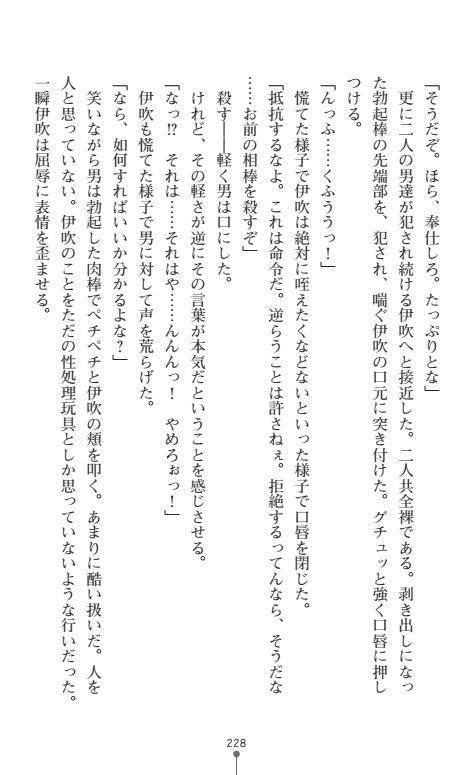 「そうだぞ。ほら、奉仕しろ。たっぷりとな」
　更に二人の男達が犯され続ける伊吹へと接近した。二人共全裸である。剥き出しになっ
た勃起棒の先端部を、犯され、喘ぐ伊吹の口元に突き付けた。グチュッと強く口唇に押し
つける。
「んっふ……くふううっ！」
　慌てた様子で伊吹は絶対に咥えたくなどないといった様子で口唇を閉じた。
「抵抗するなよ。これは命令だ。逆らうことは許さねぇ。拒絶するってんなら、そうだな
……お前の相棒を殺すぞ」
　殺す――軽く男は口にした。
　けれど、その軽さが逆にその言葉が本気だということを感じさせる。
「なっ!?　それは……それはや……んんんっ！　やめろぉっ！」
　伊吹も慌てた様子で男に対して声を荒らげた。
「なら、如何すればいいか分かるよな？」
　笑いながら男は勃起した肉棒でペチペチと伊吹の頬を叩く。あまりに酷い扱いだ。人を
人と思っていない。伊吹のことをただの性処理玩具としか思っていないような行いだった。
一瞬伊吹は屈辱に表情を歪ませる。
228